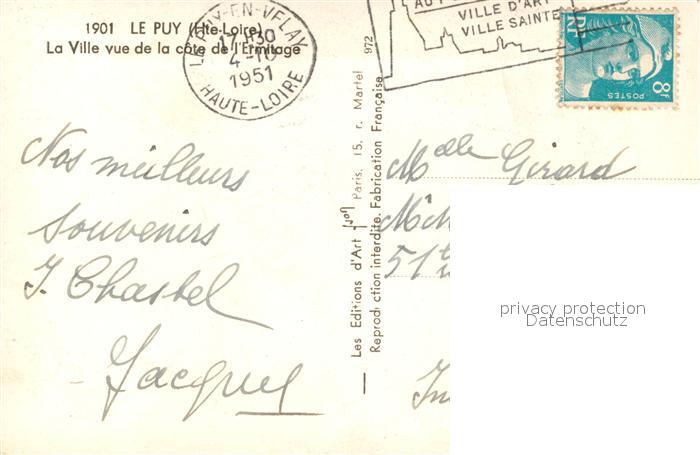 1901 LE PUY (Hte-Loire)
La Ville vue de la côte de l'Ermitage
LE PUY-EN-VELAY
17H30
4-10
1951
HAUTE-LOIRE
VILLE D'ART
VILLE SAINTE
RF
POSTES
8F
972
Nos meilleurs
souvenirs
J. Chastel
Jacques
Les Editions d'Art Paris, 15, r. Martel
Reproduction interdite. Fabrication Française
Melle Girard
51
privacy protection
Datenschutz